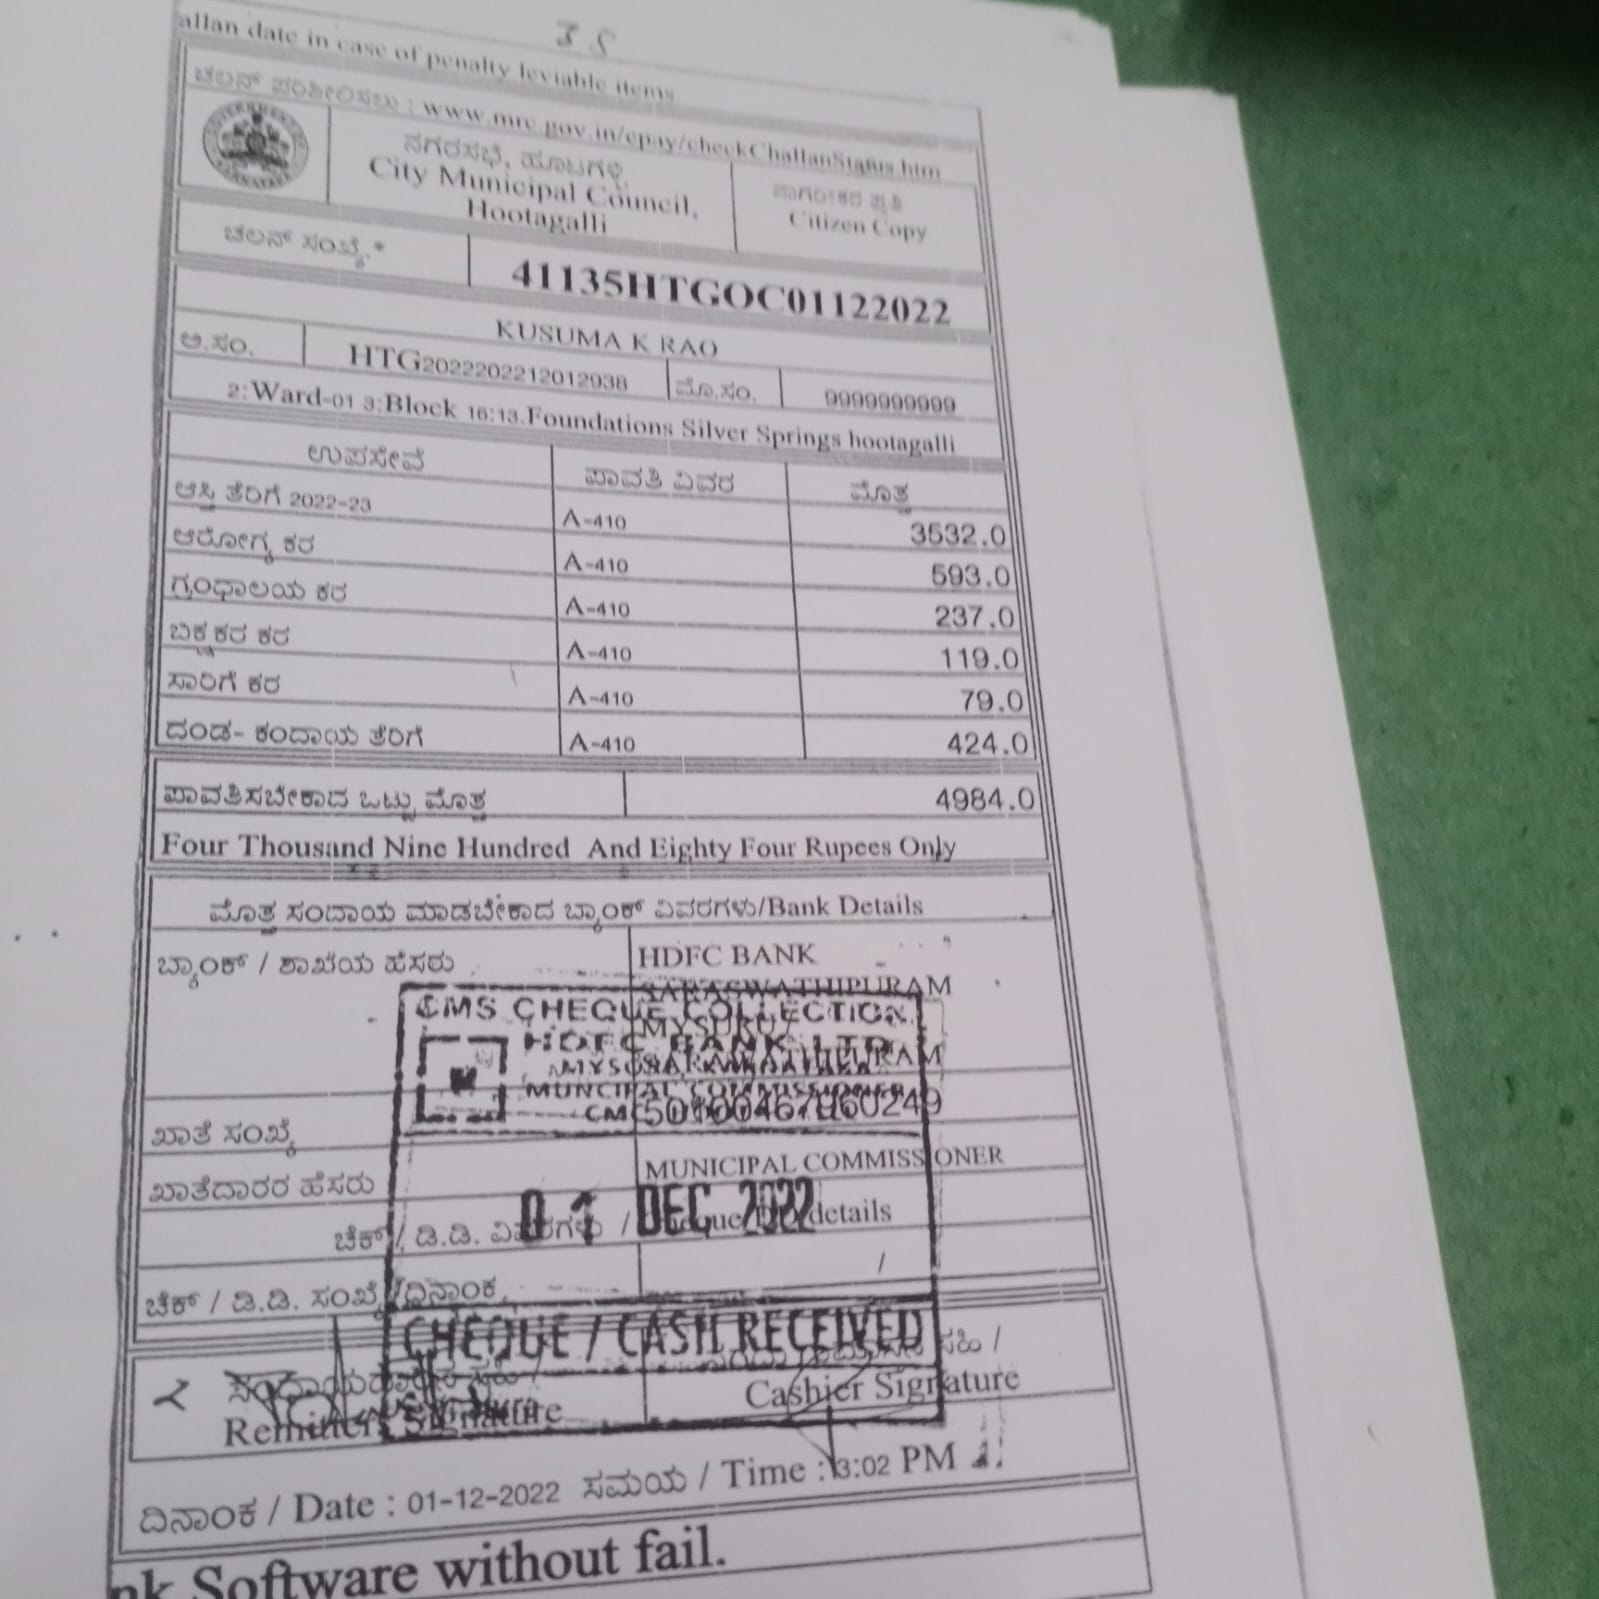 35
allan date in case of penalty leviable items
ಚಲನ್ ಪರಿಶೀಲಿಸಲು : www.mrc.gov.in/epay/checkChallanStatus.htm
ನಗರಸಭೆ, ಹೂಟಗಳ್ಳಿ
City Municipal Council,
Hootagalli
ನಾಗರೀಕರ ಪ್ರತಿ
Citizen Copy
ಚಲನ್ ಸಂಖ್ಯೆ.* 41135HTGOC01122022
KUSUMA K RAO
ಆ.ಸಂ. HTG2022202212012938 ಮೊ.ಸಂ. 9999999999
2:Ward-01 3:Block 16:13.Foundations Silver Springs hootagalli
ಉಪಸೇವೆ ಪಾವತಿ ವಿವರ ಮೊತ್ತ
ಆಸ್ತಿ ತೆರಿಗೆ 2022-23 A-410 3532.0
ಆರೋಗ್ಯ ಕರ A-410 593.0
ಗ್ರಂಥಾಲಯ ಕರ A-410 237.0
ಬಿಕ್ಷಕರ ಕರ A-410 119.0
ಸಾರಿಗೆ ಕರ A-410 79.0
ದಂಡ- ಕಂದಾಯ ತೆರಿಗೆ A-410 424.0
ಪಾವತಿಸಬೇಕಾದ ಒಟ್ಟು ಮೊತ್ತ 4984.0
Four Thousand Nine Hundred And Eighty Four Rupees Only
ಮೊತ್ತ ಸಂದಾಯ ಮಾಡಬೇಕಾದ ಬ್ಯಾಂಕ್ ವಿವರಗಳು/Bank Details
ಬ್ಯಾಂಕ್ / ಶಾಖೆಯ ಹೆಸರು HDFC BANK
SARASWATHIPURAM
MYSURU
CMS CHEQUE COLLECTION
HDFC BANK LTD
MUNCIPAL COMMISSIONER
ಖಾತೆ ಸಂಖ್ಯೆ
ಖಾತೆದಾರರ ಹೆಸರು MUNICIPAL COMMISSIONER
01 DEC 2022
ಚೆಕ್ / ಡಿ.ಡಿ. ವಿವರಗಳು / details
ಚೆಕ್ / ಡಿ.ಡಿ. ಸಂಖ್ಯೆ /ದಿನಾಂಕ /
CHEQUE / CASH RECEIVED
ಸಹಿ /
Remitters Signature
Cashier Signature
ದಿನಾಂಕ / Date : 01-12-2022 ಸಮಯ / Time : 3:02 PM
nk Software without fail.